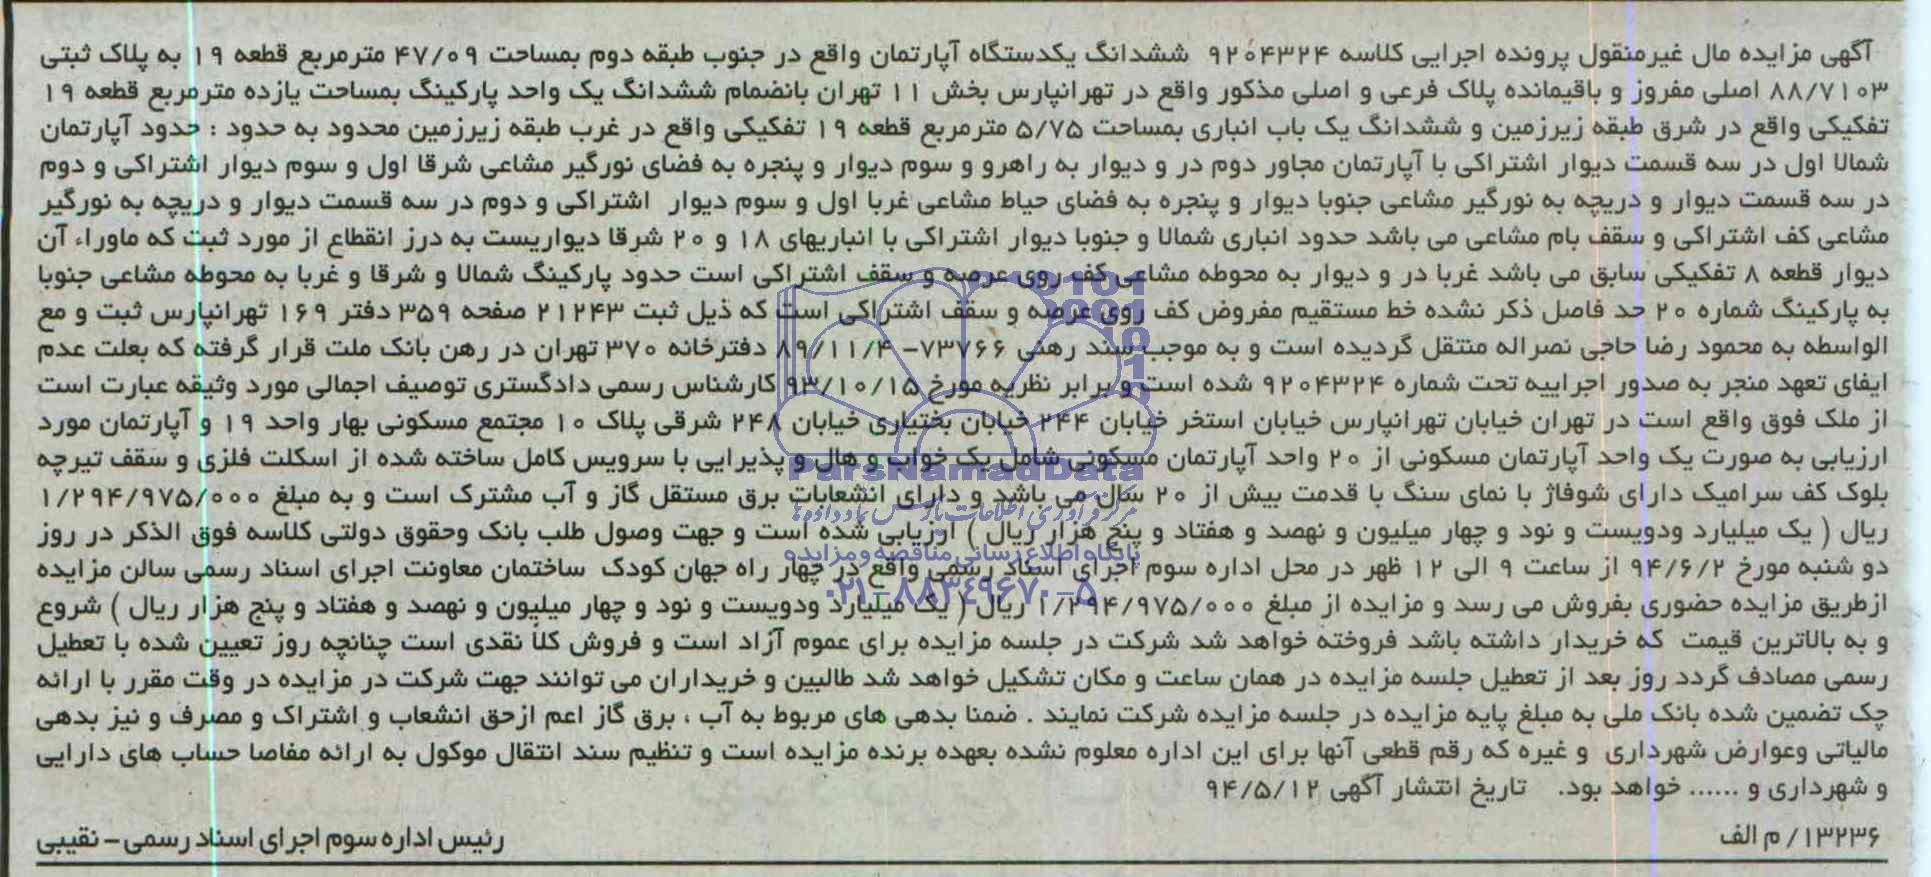 آگهی مزایده مال غیرمنقول پرونده اجرایی کلاسه ۹۲۰۴۳۲۴ ششدانگ یکدستگاه آپارتمان واقع در جنوب طبقه دوم بمساحت ۴۷/۰۹ مترمربع قطعه ۱۹ به پلاک ثبتی
۸۸/۷۱۰۳ اصلی مفروز و باقیمانده پلاک فرعی و اصلی مذکور واقع در تهرانپارس بخش ۱۱ تهران بانضمام ششدانگ یک واحد پارکینگ بمساحت یازده مترمربع قطعه ۱۹
تفکیکی واقع در شرق طبقه زیرزمین و ششدانگ یک باب انباری بمساحت ۵/۷۵ مترمربع قطعه ۱۹ تفکیکی واقع در غرب طبقه زیرزمین محدود به حدود : حدود آپارتمان
شمالا اول در سه قسمت دیوار اشتراکی با آپارتمان مجاور دوم در و دیوار به راهرو و سوم دیوار و پنجره به فضای نورگیر مشاعی شرقا اول و سوم دیوار اشتراکی و دوم
در سه قسمت دیوار و دریچه به نورگیر مشاعی جنوبا دیوار و پنجره به فضای حیاط مشاعی غربا اول و سوم دیوار اشتراکی و دوم در سه قسمت دیوار و دریچه به نورگیر
مشاعی کف اشتراکی و سقف بام مشاعی می باشد حدود انباری شمالا و جنوبا دیوار اشتراکی با انباریهای ۱۸ و ۲۰ شرقا دیواریست به درز انقطاع از مورد ثبت که ماوراء آن
دیوار قطعه ۸ تفکیکی سابق می باشد غربا در و دیوار به محوطه مشاعی کف روی عرصه و سقف اشتراکی است حدود پارکینگ شمالا و شرقا و غربا به محوطه مشاعی جنوبا
به پارکینگ شماره ۲۰ حد فاصل ذکر نشده خط مستقیم مفروض کف روی عرصه و سقف اشتراکی است که ذیل ثبت ۲۱۲۴۳ صفحه ۳۵۹ دفتر ۱۶۹ تهرانپارس ثبت و مع
الواسطه به محمود رضا حاجی نصراله منتقل گردیده است و به موجب سند رهنی ۷۳۷۶۶- ۸۹/۱۱/۴ دفترخانه ۳۷۰ تهران در رهن بانک ملت قرار گرفته که بعلت عدم
ایفای تعهد منجر به صدور اجراییه تحت شماره ۹۲۰۴۳۲۴ شده است و برابر نظریه مورخ ۹۳/۱۰/۱۵ کارشناس رسمی دادگستری توصیف اجمالی مورد وثیقه عبارت است
از ملک فوق واقع است در تهران خیابان تهرانپارس خیابان استخر خیابان ۲۴۴ خیابان بختیاری خیابان ۲۴۸ شرقی پلاک ۱۰ مجتمع مسکونی بهار واحد ۱۹ و آپارتمان مورد
ارزیابی به صورت یک واحد آپارتمان مسکونی از ۲۰ واحد آپارتمان مسکونی شامل یک خواب و هال و پذیرایی با سرویس کامل ساخته شده از اسکلت فلزی و سقف تیرچه
بلوک کف سرامیک دارای شوفاژ با نمای سنگ با قدمت بیش از ۲۰ سال می باشد و دارای انشعابات برق مستقل گاز و آب مشترک است و به مبلغ ۱/۲۹۴/۹۷۵/۰۰۰
ریال ( یک میلیارد ودویست و نود و چهار میلیون و نهصد و هفتاد و پنج هزار ریال ) ارزیابی شده است و جهت وصول طلب بانک وحقوق دولتی کلاسه فوق الذکر در روز
دو شنبه مورخ ۹۴/۶/۲ از ساعت ۹ الی ۱۲ ظهر در محل اداره سوم اجرای اسناد رسمی واقع در چهار راه جهان کودک ساختمان معاونت اجرای اسناد رسمی سالن مزایده
ازطریق مزایده حضوری بفروش می رسد و مزایده از مبلغ ۱/۲۹۴/۹۷۵/۰۰۰ ریال ( یک میلیارد ودویست و نود و چهار میلیون و نهصد و هفتاد و پنج هزار ریال ) شروع
و به بالاترین قیمت که خریدار داشته باشد فروخته خواهد شد شرکت در جلسه مزایده برای عموم آزاد است و فروش کلاً نقدی است چنانچه روز تعیین شده با تعطیل
رسمی مصادف گردد روز بعد از تعطیل جلسه مزایده در همان ساعت و مکان تشکیل خواهد شد طالبین و خریداران می توانند جهت شرکت در مزایده در وقت مقرر با ارائه
چک تضمین شده بانک ملی به مبلغ پایه مزایده در جلسه مزایده شرکت نمایند . ضمنا بدهی های مربوط به آب ، برق گاز اعم ازحق انشعاب و اشتراک و مصرف و نیز بدهی
مالیاتی وعوارض شهرداری و غیره که رقم قطعی آنها برای این اداره معلوم نشده بعهده برنده مزایده است و تنظیم سند انتقال موکول به ارائه مفاصا حساب های دارایی
و شهرداری و ...... خواهد بود. تاریخ انتشار آگهی ۹۴/۵/۱۲
۱۳۲۳۶/ م الف
رئیس اداره سوم اجرای اسناد رسمی – نقیبی
ParsNamadData
مرکز فرآوری اطلاعات پارس نماد داده ها
پایگاه اطلاع رسانی مناقصه و مزایده
۰۲۱-۸۸۳۴۹۶۷۰-۵